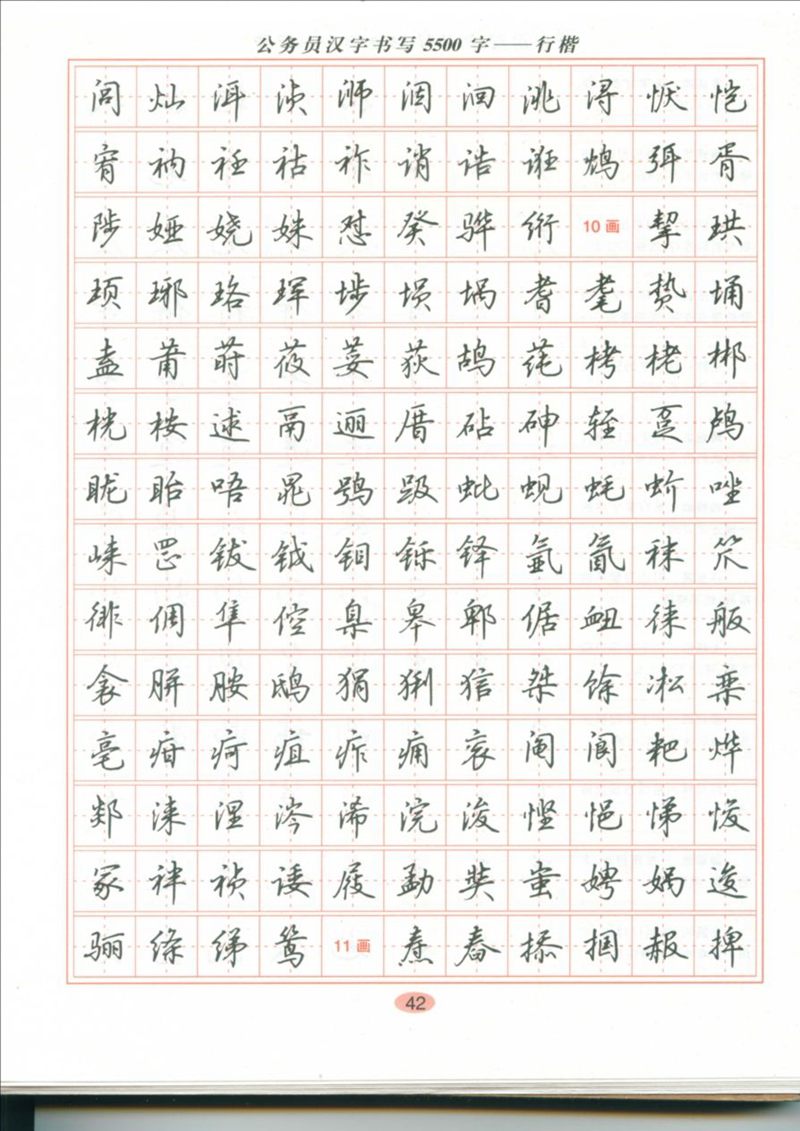 公务员汉字书写5500字——行楷
闾 灿 洱 浈 浉 洇 洄 洮 浔 恹 恺
宥 衲 衽 祜 祚 诮 诰 诳 鸩 弭 胥
陟 娅 娆 姝 怼 癸 骅 绗 10画 挈 珙
顼 琊 珞 珲 埗 埙 埚 耆 耄 贽 埇
盍 莆 莳 莜 荽 荻 鸪 莼 栲 栳 郴
桄 桉 逑 鬲 逦 厝 砧 砷 轾 趸 鸬
眬 眙 唔 晁 鸮 趿 蚍 蚬 蚝 蚧 唑
崃 罡 钹 钺 钼 铄 铎 氩 氤 秣 笊
徘 倜 隼 倥 臬 皋 郫 倨 衄 徕 舨
衾 胼 胺 鸱 狷 猁 狺 桀 馀 凇 栾
亳 疳 疴 疽 痄 痈 衮 阄 阆 粑 烨
郯 涞 涅 涔 浠 浣 浚 悭 悒 悌 悛
冢 袢 祯 诿 屐 勐 奘 蚩 娉 娲 逡
骊 绦 绨 鸶 11画 焘 舂 掭 掴 赧 捭
42